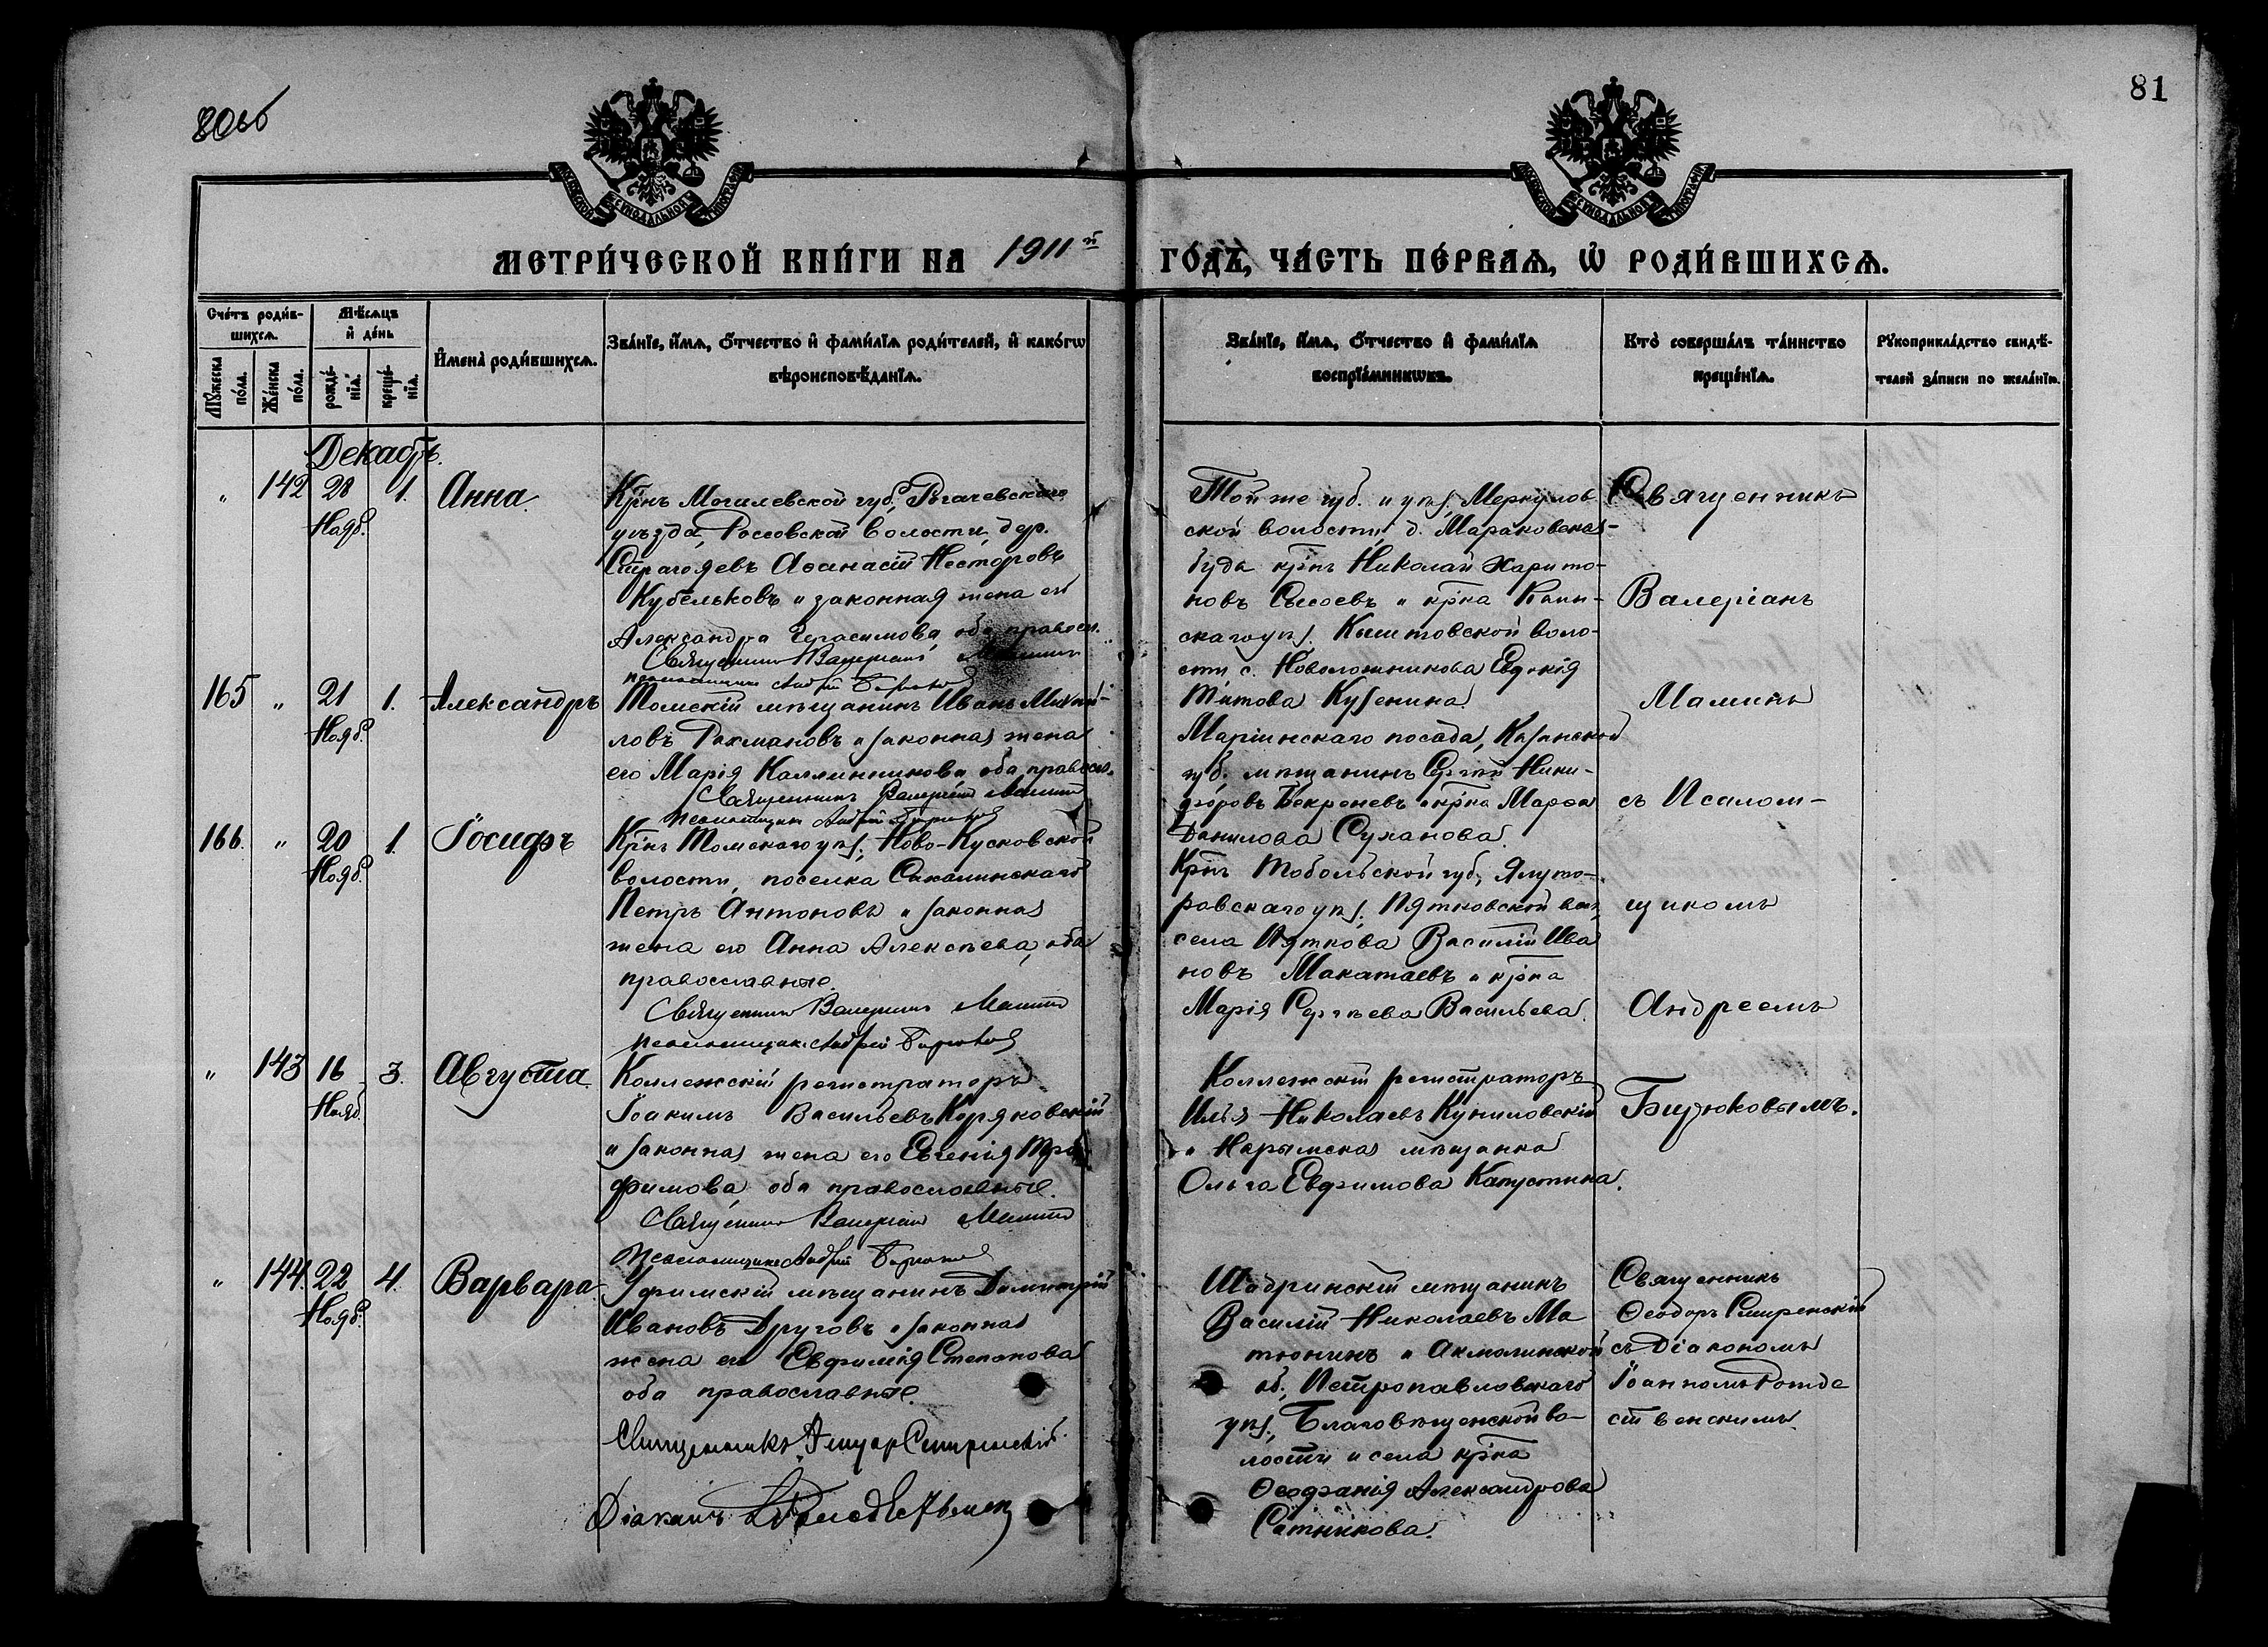 80 об
81
МОСКОВСКОЙ СѴНОДАЛЬНОЙ ТИПОГРАФІИ
МОСКОВСКОЙ СѴНОДАЛЬНОЙ ТИПОГРАФІИ
МЕТРИ́ЧЕСКОЙ КНИ́ГИ НА 1911й ГО́ДЪ, ЧА́СТЬ ПЕ́РВАѦ, Ѡ҆ РОДИ́ВШИХСѦ.
Сче́тъ роди́в-
шихсѧ.
Мѣ́сѧцъ
и҆ де́нь
Мꙋ́жеска
по́ла.
Же́нска
по́ла.
рожде́-
нїѧ.
креще́-
нїѧ.
И҆мена̀ роди́вшихсѧ.
Зва́нїе, и҆́мѧ, ѻ҆́тчество и҆ фами́лїѧ роди́телей, и҆ како́гѡ
вѣроисповѣ́данїѧ.
Зва́нїе, и҆́мѧ, ѻ҆́тчество и҆ фами́лїѧ
воспрїе́мникѡвъ.
Кто̀ соверша́лъ та́инство
креще́нїѧ.
Рꙋкоприкла́дство свидѣ́-
телей за́писи по жела́нїю.
Декабрь.
„ 142 28 1. Анна.
Нояб.
Крнъ Могилевской губ., Рогачевскаго
уѣзда, Россовской волости, дер.
Страгодевъ Аѳанасій Несторовъ
Кубельковъ и законная жена его
Александра Герасимова, оба правосл.
Священникъ Валеріанъ Маминъ
Псаломщикъ Андрей Бирюковъ
Той же губ. и уѣз., Меркулов-
ской волости, д. Мараковская-
Буда крнъ Николай Харито-
новъ Сысоевъ и крка Каин-
скаго уѣз. Кыштовской воло-
сти с. Новоложникова Евдокія
Титова Кузенина.
Священникъ
Валеріанъ
Маминъ
съ Псалом-
щикомъ
Андреемъ
Бирюковымъ.
165 „ 21 1. Александръ
Нояб.
Томскій мѣщанинъ Иванъ Михай-
ловъ Рахмановъ и законная жена
его Марія Каллинникова, оба правосл.
Священникъ Валеріанъ Маминъ
Псаломщикъ Андрей Бирюковъ
Маріинскаго посада, Казанской
губ. мѣщанинъ Сергій Ники-
форовъ Бекреневъ и крка Марѳа
Данилова Суханова.
166. „ 20 1. Іосифъ
Нояб.
Крнъ Томскаго уѣз., Ново-Кусковской
волости, поселка Сахалинскаго
Петръ Антоновъ и законная
жена его Анна Алексѣева, оба
православные.
Священникъ Валеріанъ Маминъ
Псаломщикъ Андрей Бирюковъ
Крнъ Тобольской губ., Ялуто-
ровскаго уѣз. Пятковской вол.,
села Пяткова Василій Ива
новъ Макатаевъ и крка
Марія Сергѣева Васильева.
„ 143 16 3. Августа.
Нояб.
Коллежскій регистраторъ
Іоакимъ Васильевъ Коряковскій
и законная жена его Евгенія Тро
фимова, оба православные.
Священникъ Валеріанъ Маминъ
Псаломщикъ Андрей Бирюковъ
Коллежскій регистраторъ
Илья Николаевъ Куниловскій
и Нарымская мѣщанка
Ольга Евфимова Капустина.
„ 144. 22 4. Варвара
Нояб.
Уфимскій мѣщанинъ Димитрій
Ивановъ Друговъ и законная
жена его Евфимія Степанова
оба православные.
Священникъ Смиренскій.
Діаконъ
Шадринскій мѣщанинъ
Василій Николаевъ Ма
тюнинъ и Акмолинской
об., Петропавловскаго
уѣз., Благовѣщенской во-
лости и села крка
Ѳеофанія Александрова
Сотникова.
Священникъ
Ѳеодоръ Смиренскій
съ Діакономъ
Іоанномъ Рожде
ственскимъ